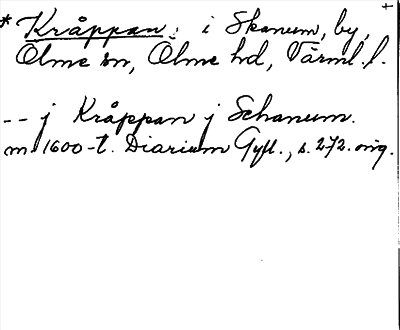 +
* Kråppan, i Skanum, by,
Ölme sn, Ölme hd, Värml. l.
-- j Kråppan j Schanum.
m. 1600-t. Diarium Gyll., s. 272. orig.